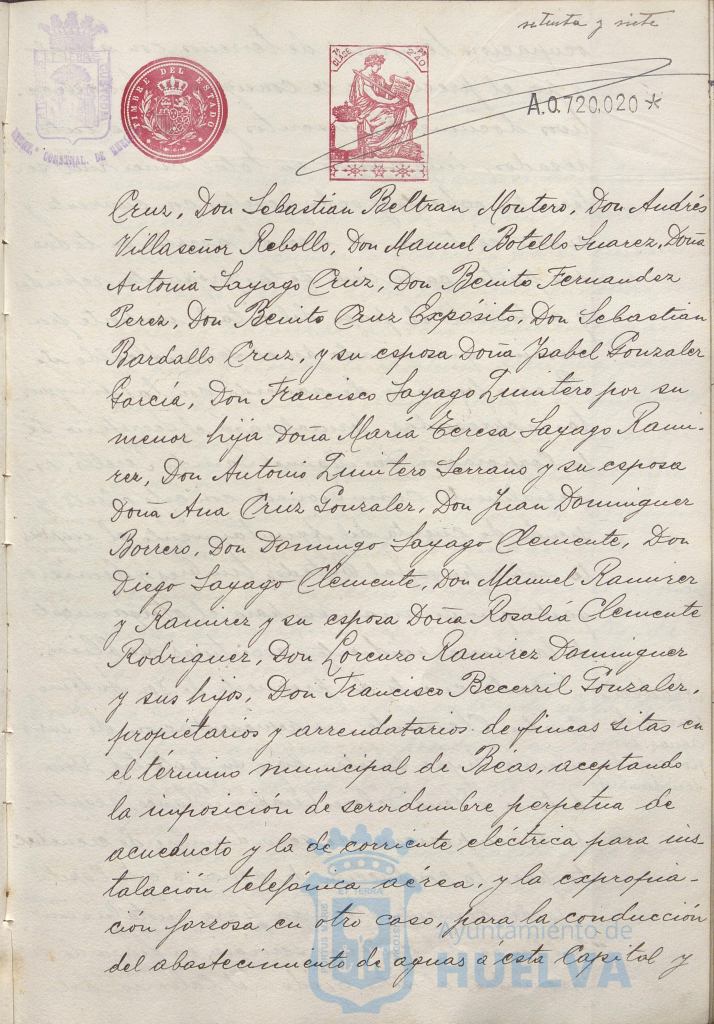 setenta y siete
TIMBRE DEL ESTADO
7ª CLASE
PTS 2'40
A.0.720,020*
Cruz, Don Sebastian Beltran Montero, Don Andrés
Villaseñor Rebollo, Don Manuel Botello Suarez, Doña
Antonia Sayago Crúz, Don Benito Fernandez
Perez, Don Benito Cruz Expósito, Don Sebastian
Bardallo Cruz, y su esposa Doña Ysabel Gonzalez
García, Don Francisco Sayago Quintero por su
menor hija Doña María Teresa Sayago Rami-
rez, Don Antonio Quintero Serrano y su esposa
Doña Ana Crúz Gonzalez, Don Juan Dominguez
Borrero, Don Domingo Sayago Clemente, Don
Diego Sayago Clemente, Don Manuel Ramirez
y Ramirez y su esposa Doña Rosalía Clemente
Rodriguez, Don Lorenzo Ramirez Dominguez
y sus hijos, Don Francisco Becerril Gonzalez,
propietarios y arrendatarios de fincas sitas en
el término municipal de Béas, aceptando
la imposición de servidumbre perpetua de
acueducto y la de corriente eléctrica para ins-
talación telefónica aérea, y la expropia-
ción forzosa en otro caso, para la conducción
del abastecimiento de aguas á ésta Capital y
Ayuntamiento de
HUELVA